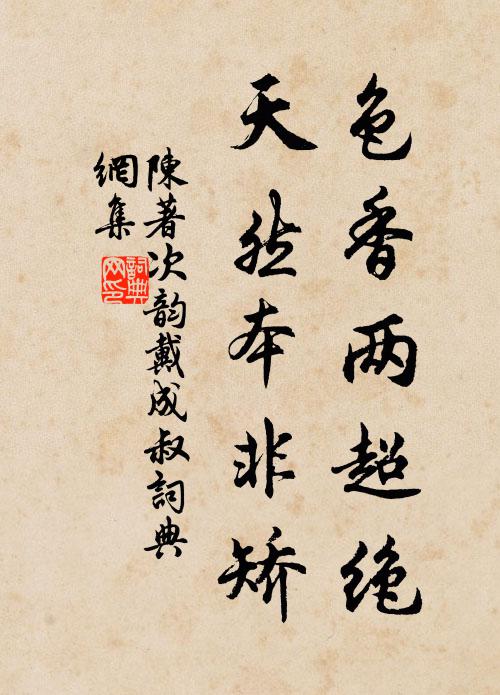 色香两超绝
天然本非矫
陳著次韵戴成叔詞典
網集
詞典网印